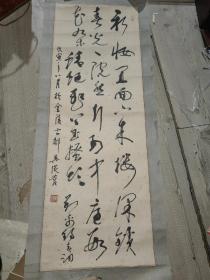 新妝宜面下朱樓深鎖
春光一院愁行到中庭數
花朵蜻蜓飛上玉搔頭
劉禹錫詩春詞
戊寅年八月於金陵古都